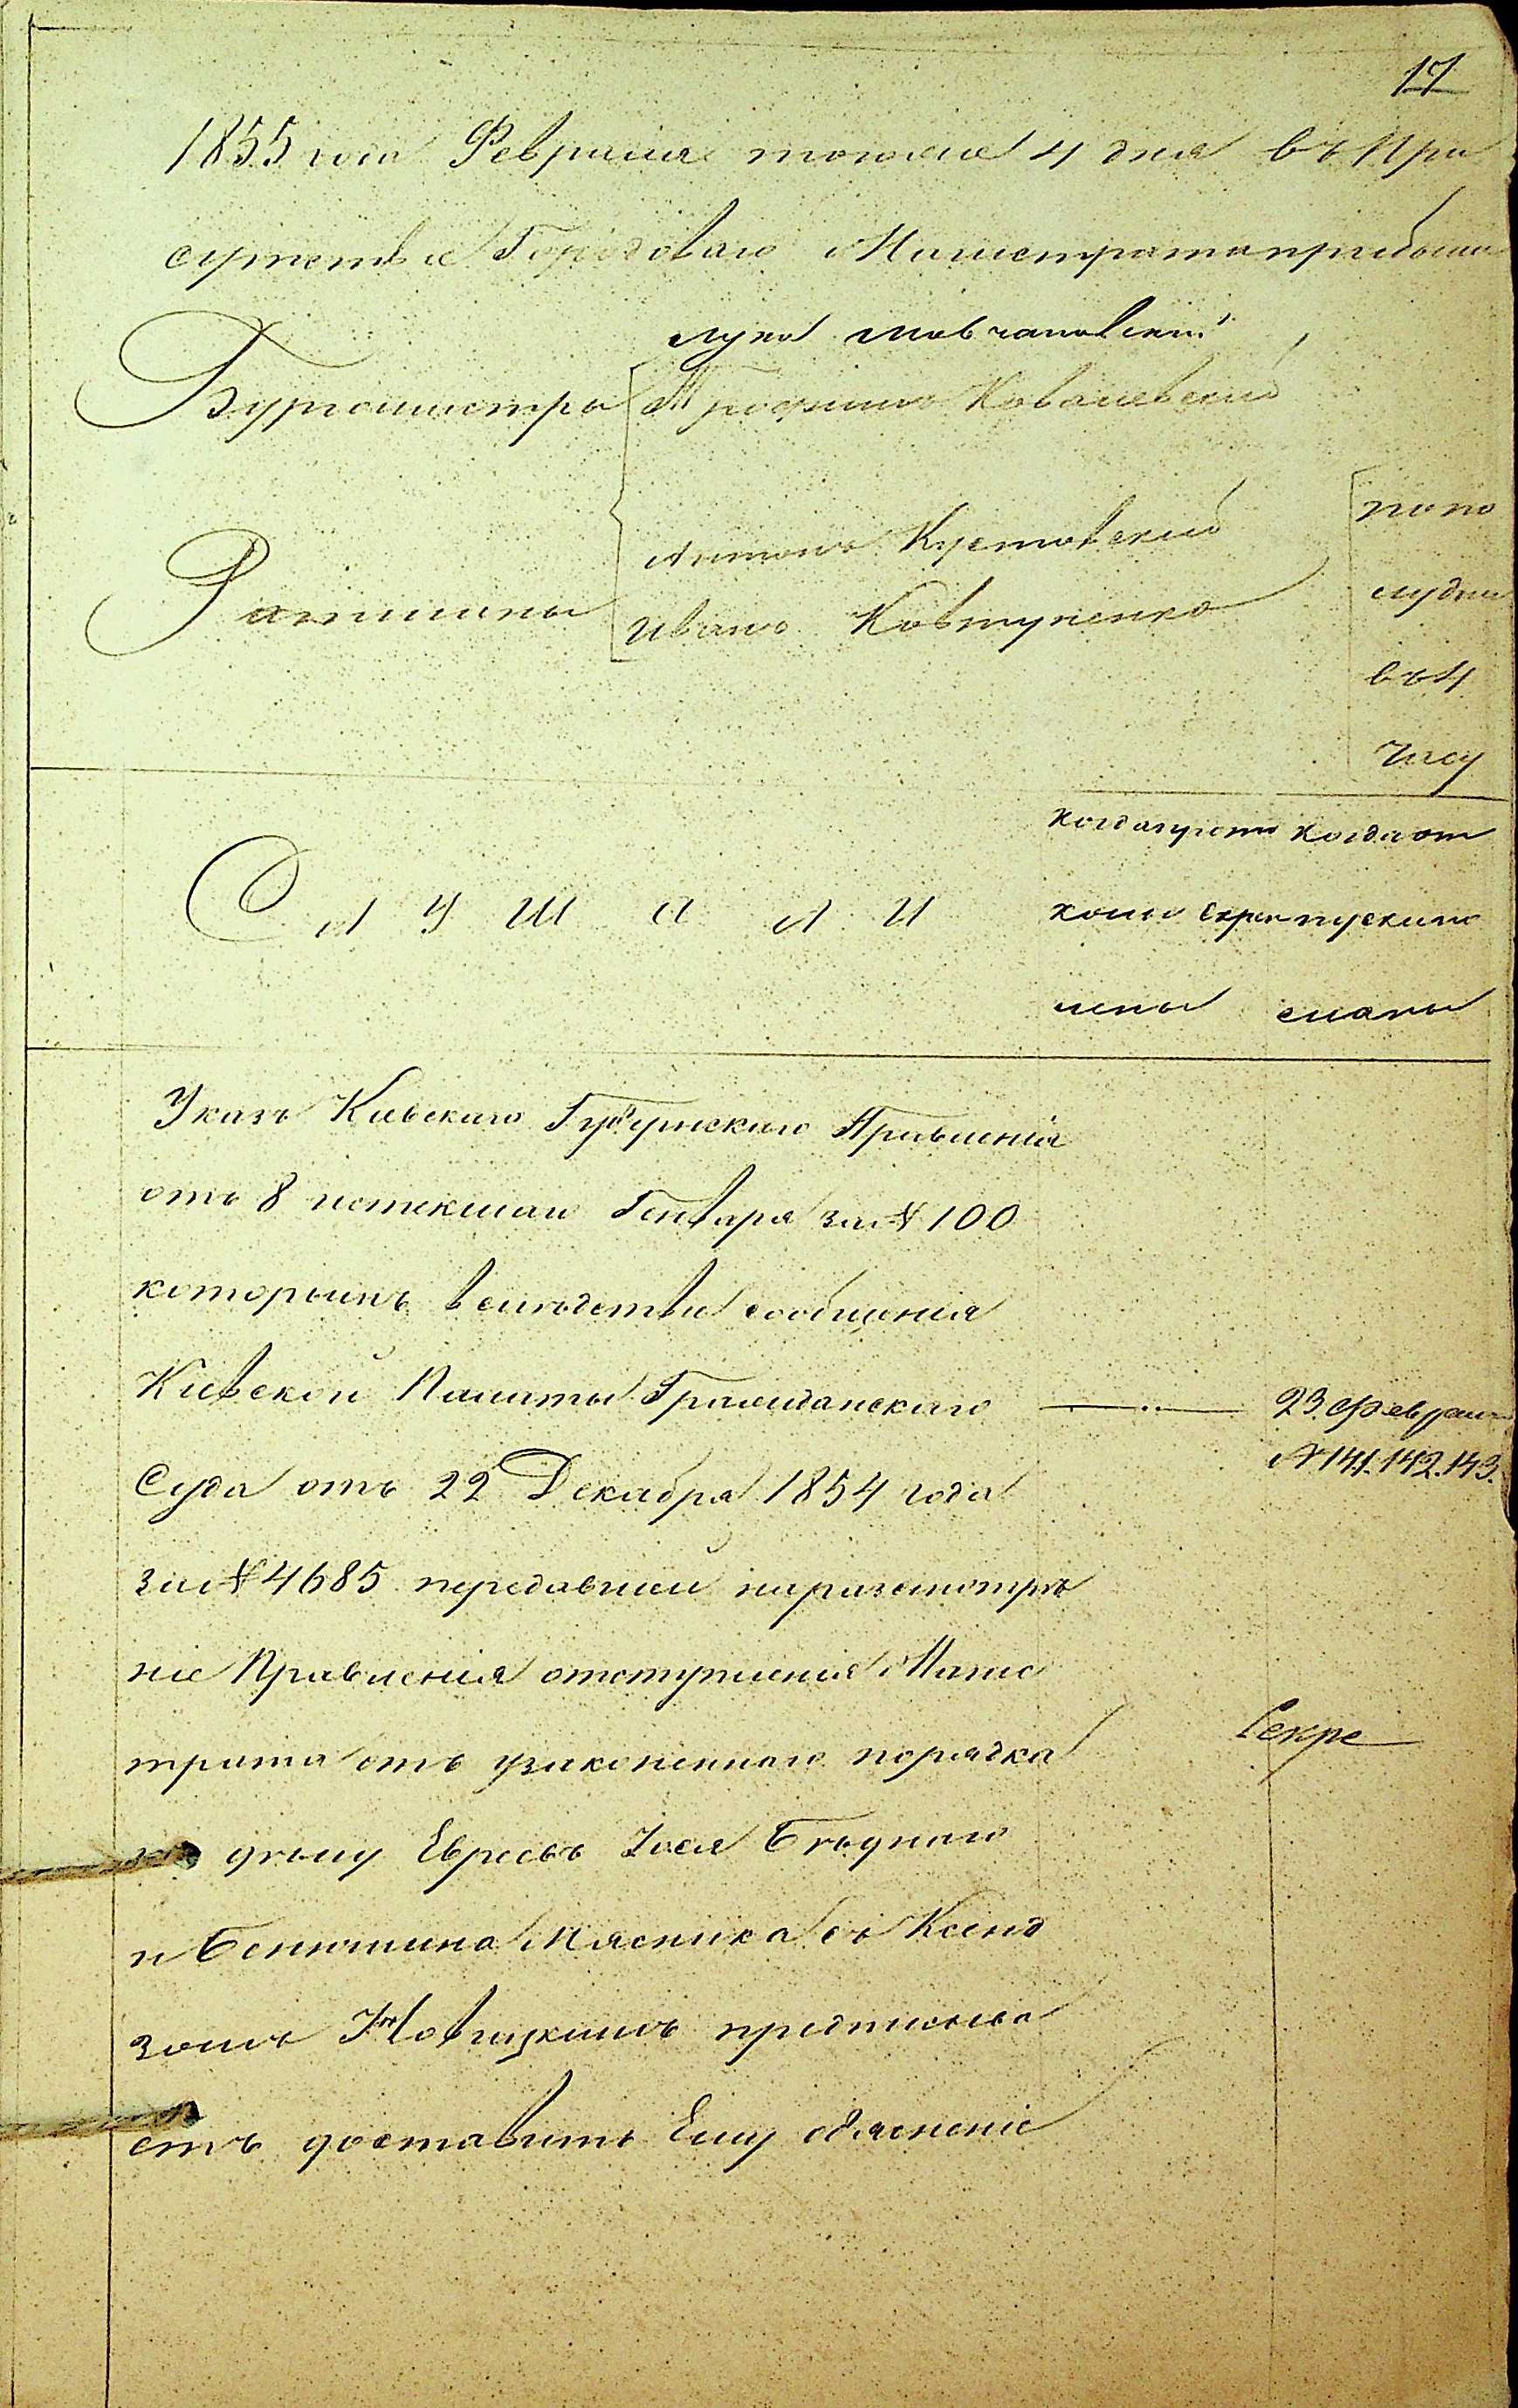 17
1855 года Февраля того же 4 дня въ При
сутствіе Городоваго Магистрата прибыли
Лука Мовчановскій
Бургомистры Трофимъ Ковалевскій
Антонъ Кустовский
Ратманы Иванъ Ковтуненко
попо
лудни
въ 4
часу
Слушали
Когда и Кемъ
Когда от
коми скре
пускано
лены
сланы
Указъ Кіевскаго Губернскаго Правленія
отъ 8 истекшаго Генваря за № 100
которымъ вслѣдствіе сообщенія
Кіевской Палаты Гражданскаго
Суда отъ 22 Декабря 1854 года
за № 4685 передавшей на разсмотрѣ
ніе Правленія отступленія Магис
трата отъ узаконеннаго порядка
по дѣлу Евреевъ Іося Бѣднаго
и Бенюмина Мясника съ Ксенд
зомъ Новицкимъ предписыва
етъ доставить Ему объясненіе
23. Февраля
№ 141. 142. 143.
Секре